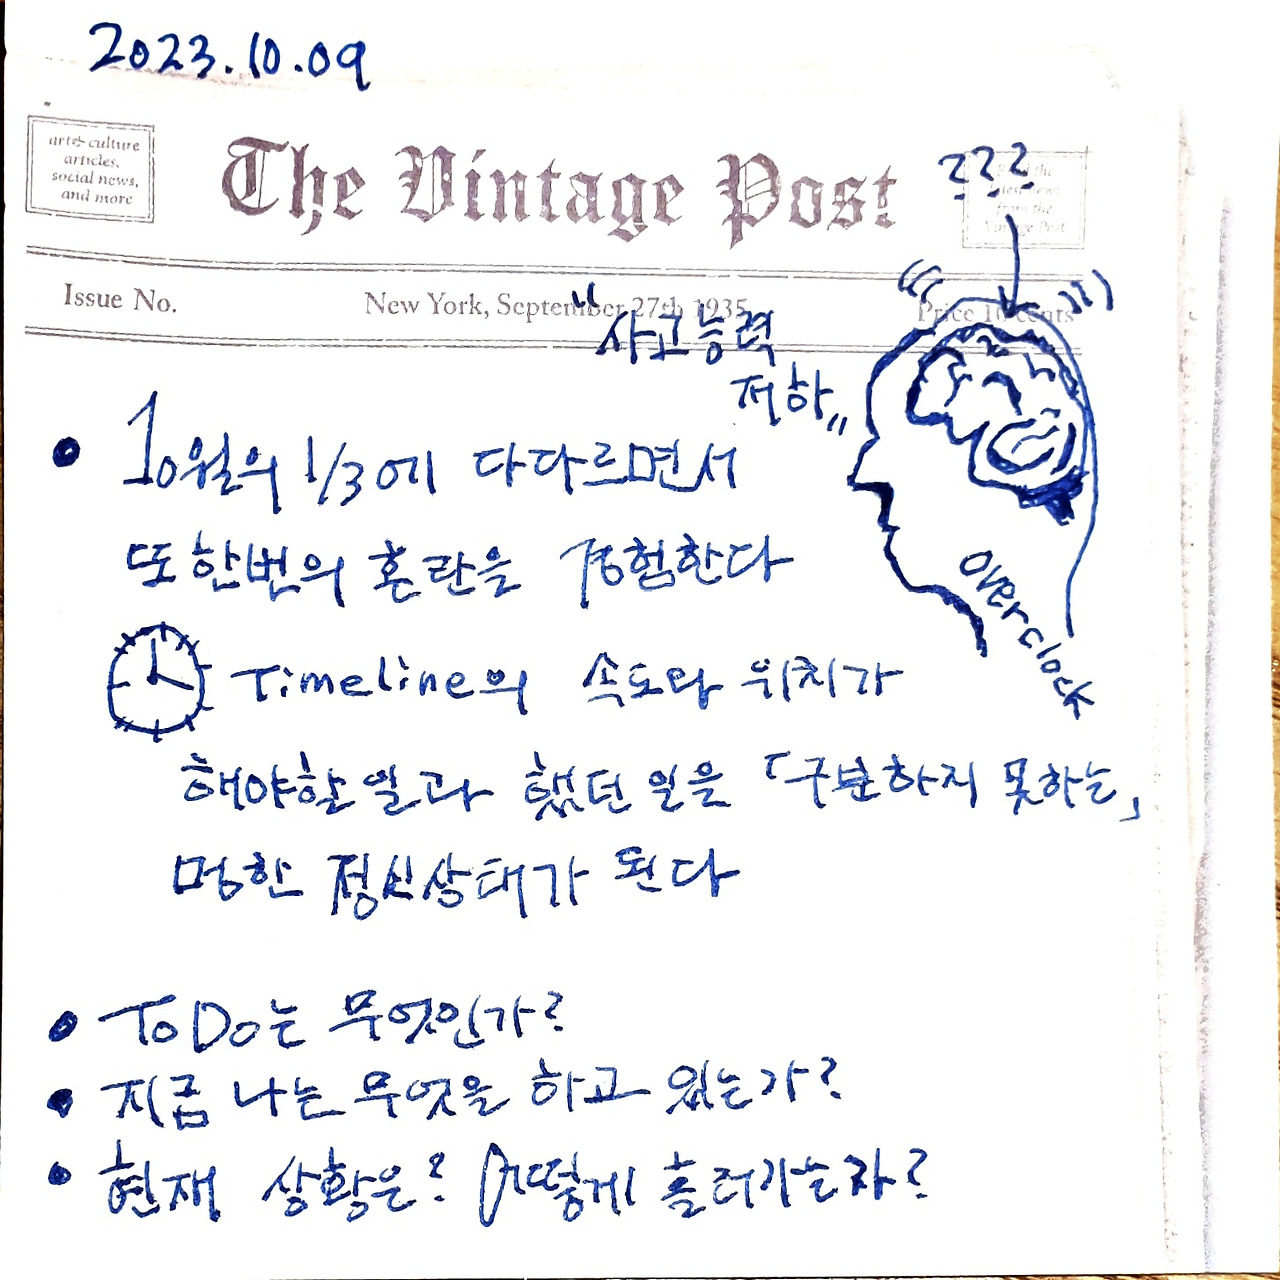 2023.10.09
arts culture
articles,
social news,
and more
The Vintage Post
???
Issue No.
New York, September 27th 1935
Price 10 cents
"사고능력
저하"
• 10월의 1/3에 다다르면서
또 한번의 혼란을 경험한다
Timeline의 속도와 위치가
해야할 일과 했던 일을 「구분하지 못하는」
멍한 정신상태가 된다
overclock
• To Do는 무엇인가?
• 지금 나는 무엇을 하고 있는가?
• 현재 상황은? 어떻게 흘러가는가?